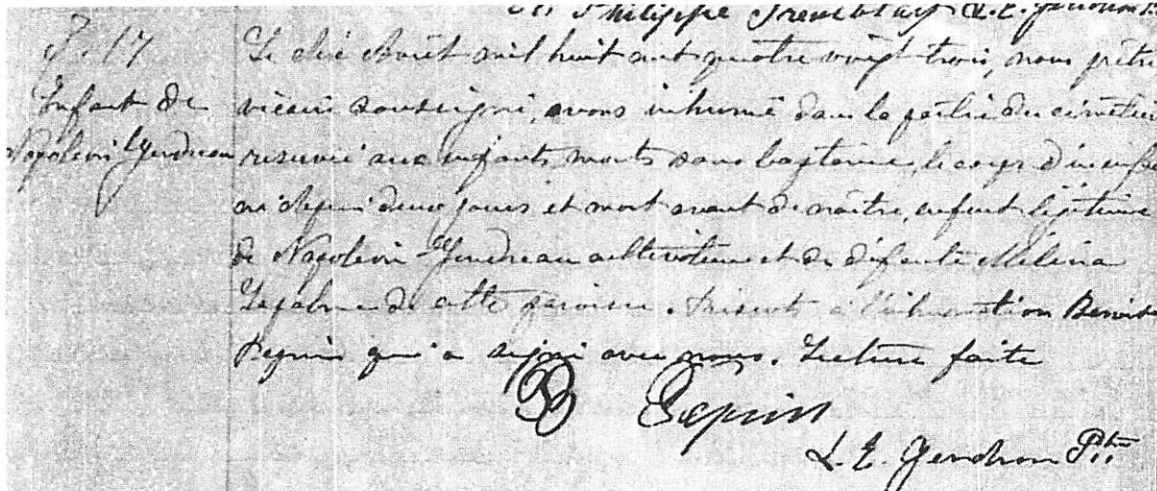 Philippe Tremblay L. E. Gendron Ptre
S. 17
Le dix Août mil huit cent quatre vingt trois, nous prêtre
Enfant de
vicaire soussigné, avons inhumé dans la partie du cimetière
Napoléon Gendreau
réservée aux enfants morts sans baptême, le corps d'un enfant
né depuis deux jours et mort avant de naître, enfant légitime
de Napoléon Gendreau cultivateur et de défunte Mélina
de cette paroisse. Présents à l'inhumation
Pepin qui a signé avec nous. Lecture faite
B Pepin
L. E. Gendron Ptre